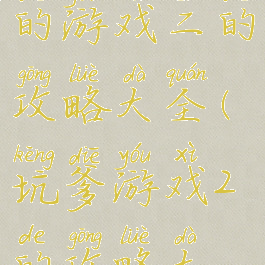 的游戏二的
gōng lüè dà quán
攻略大全(
kēng diē yóu xì
坑爹游戏2
de gōng lüè dà
的攻略大